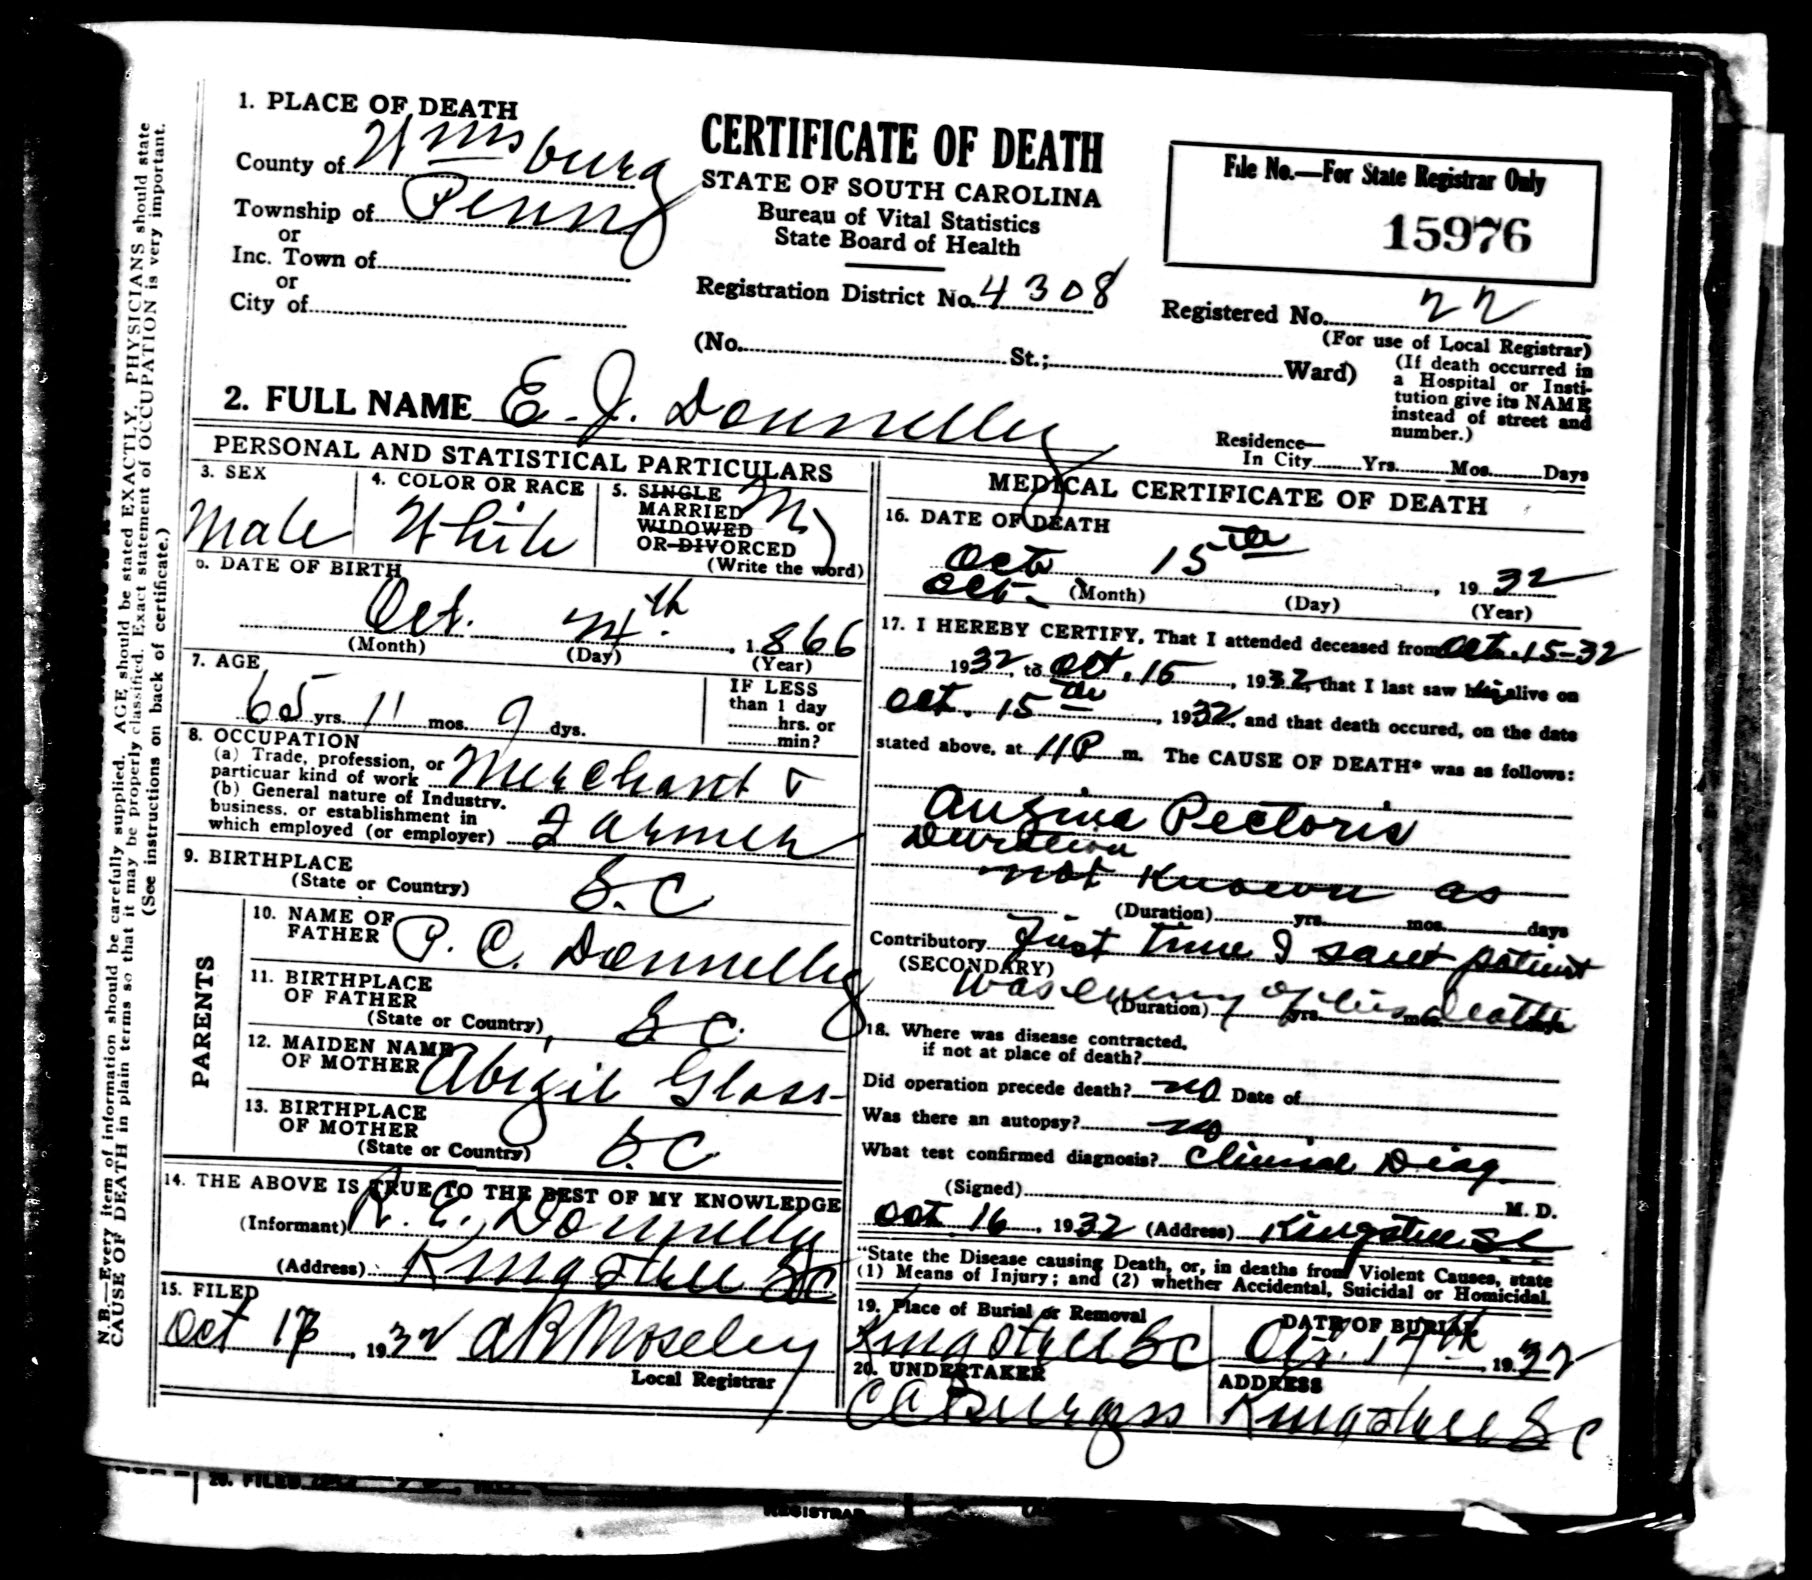 1. PLACE OF DEATH
County of Wmsburg
Township of Penny
or
Inc. Town of
or
City of
CERTIFICATE OF DEATH
STATE OF SOUTH CAROLINA
Bureau of Vital Statistics
State Board of Health
Registration District No. 4308
(No. St.; Ward)
File No.—For State Registrar Only
15976
Registered No. 22
(For use of Local Registrar)
(If death occurred in
a Hospital or Insti-
tution give its NAME
instead of street and
number.)
2. FULL NAME E. J. Donnelly
Residence—
In City Yrs. Mos. Days
PERSONAL AND STATISTICAL PARTICULARS
3. SEX
Male
4. COLOR OR RACE
White
5. SINGLE
MARRIED
WIDOWED
OR DIVORCED
(Write the word)
M
6. DATE OF BIRTH
Oct. 24th. , 1866
(Month) (Day) (Year)
7. AGE
65 yrs. 11 mos. 9 dys.
IF LESS
than 1 day
hrs. or
min?
8. OCCUPATION
(a) Trade, profession, or
particuar kind of work Merchant &
(b) General nature of Industry.
business. or establishment in
which employed (or employer) Farmer
9. BIRTHPLACE
(State or Country) S.C
PARENTS
10. NAME OF
FATHER P. C. Donnelly
11. BIRTHPLACE
OF FATHER
(State or Country) S.C.
12. MAIDEN NAME
OF MOTHER Abigil Glass
13. BIRTHPLACE
OF MOTHER
(State or Country) S.C
14. THE ABOVE IS TRUE TO THE BEST OF MY KNOWLEDGE
(Informant) R. E. Donnelly
(Address) Kingstree SC
15. FILED
Oct , 1932 A B Moseley
Local Registrar
MEDICAL CERTIFICATE OF DEATH
16. DATE OF DEATH
Oct 15th , 1932
Oct. (Month) (Day) (Year)
17. I HEREBY CERTIFY, That I attended deceased from Oct. 15-32
1932, to Oct. 15 , 1932, that I last saw him alive on
Oct. 15th , 1932, and that death occured, on the date
stated above, at 11 P m. The CAUSE OF DEATH* was as follows:
Angina Pectoris
Duration
not Known as
(Duration) yrs. mos. days
Contributory first time I saw patient
(SECONDARY)
was evening of his death
(Duration) yrs. mos. days
18. Where was disease contracted,
if not at place of death?
Did operation precede death? no Date of
Was there an autopsy? no
What test confirmed diagnosis? Clinical Diag
(Signed) M. D.
Oct 16 , 1932 (Address) Kingstree SC
*State the Disease causing Death, or, in deaths from Violent Causes, state
(1) Means of Injury; and (2) whether Accidental, Suicidal or Homicidal.
19. Place of Burial or Removal
Kingstree SC
DATE OF BURIAL
Oct. 17th , 1932
20. UNDERTAKER
C C Burgess
ADDRESS
Kingstree SC
N. B.—Every item of information should be carefully supplied. AGE should be stated EXACTLY. PHYSICIANS should state
CAUSE OF DEATH in plain terms so that it may be properly classified. Exact statement of OCCUPATION is very important.
(See instructions on back of certificate.)
20. FILED
REGISTRAR